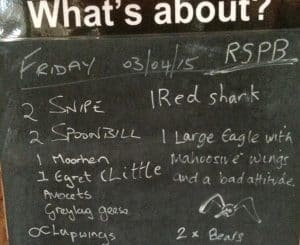 What's about?
FRIDAY 03/04/15 RSPB
2 SNIPE
2 SPOONBILL
1 Moorhen
1 Egret (Little
Avocets
Greylag geese
Lapwings
1 Red shank
1 Large Eagle with
Mahoosive wings
and a bad attitude.
2 x Bears